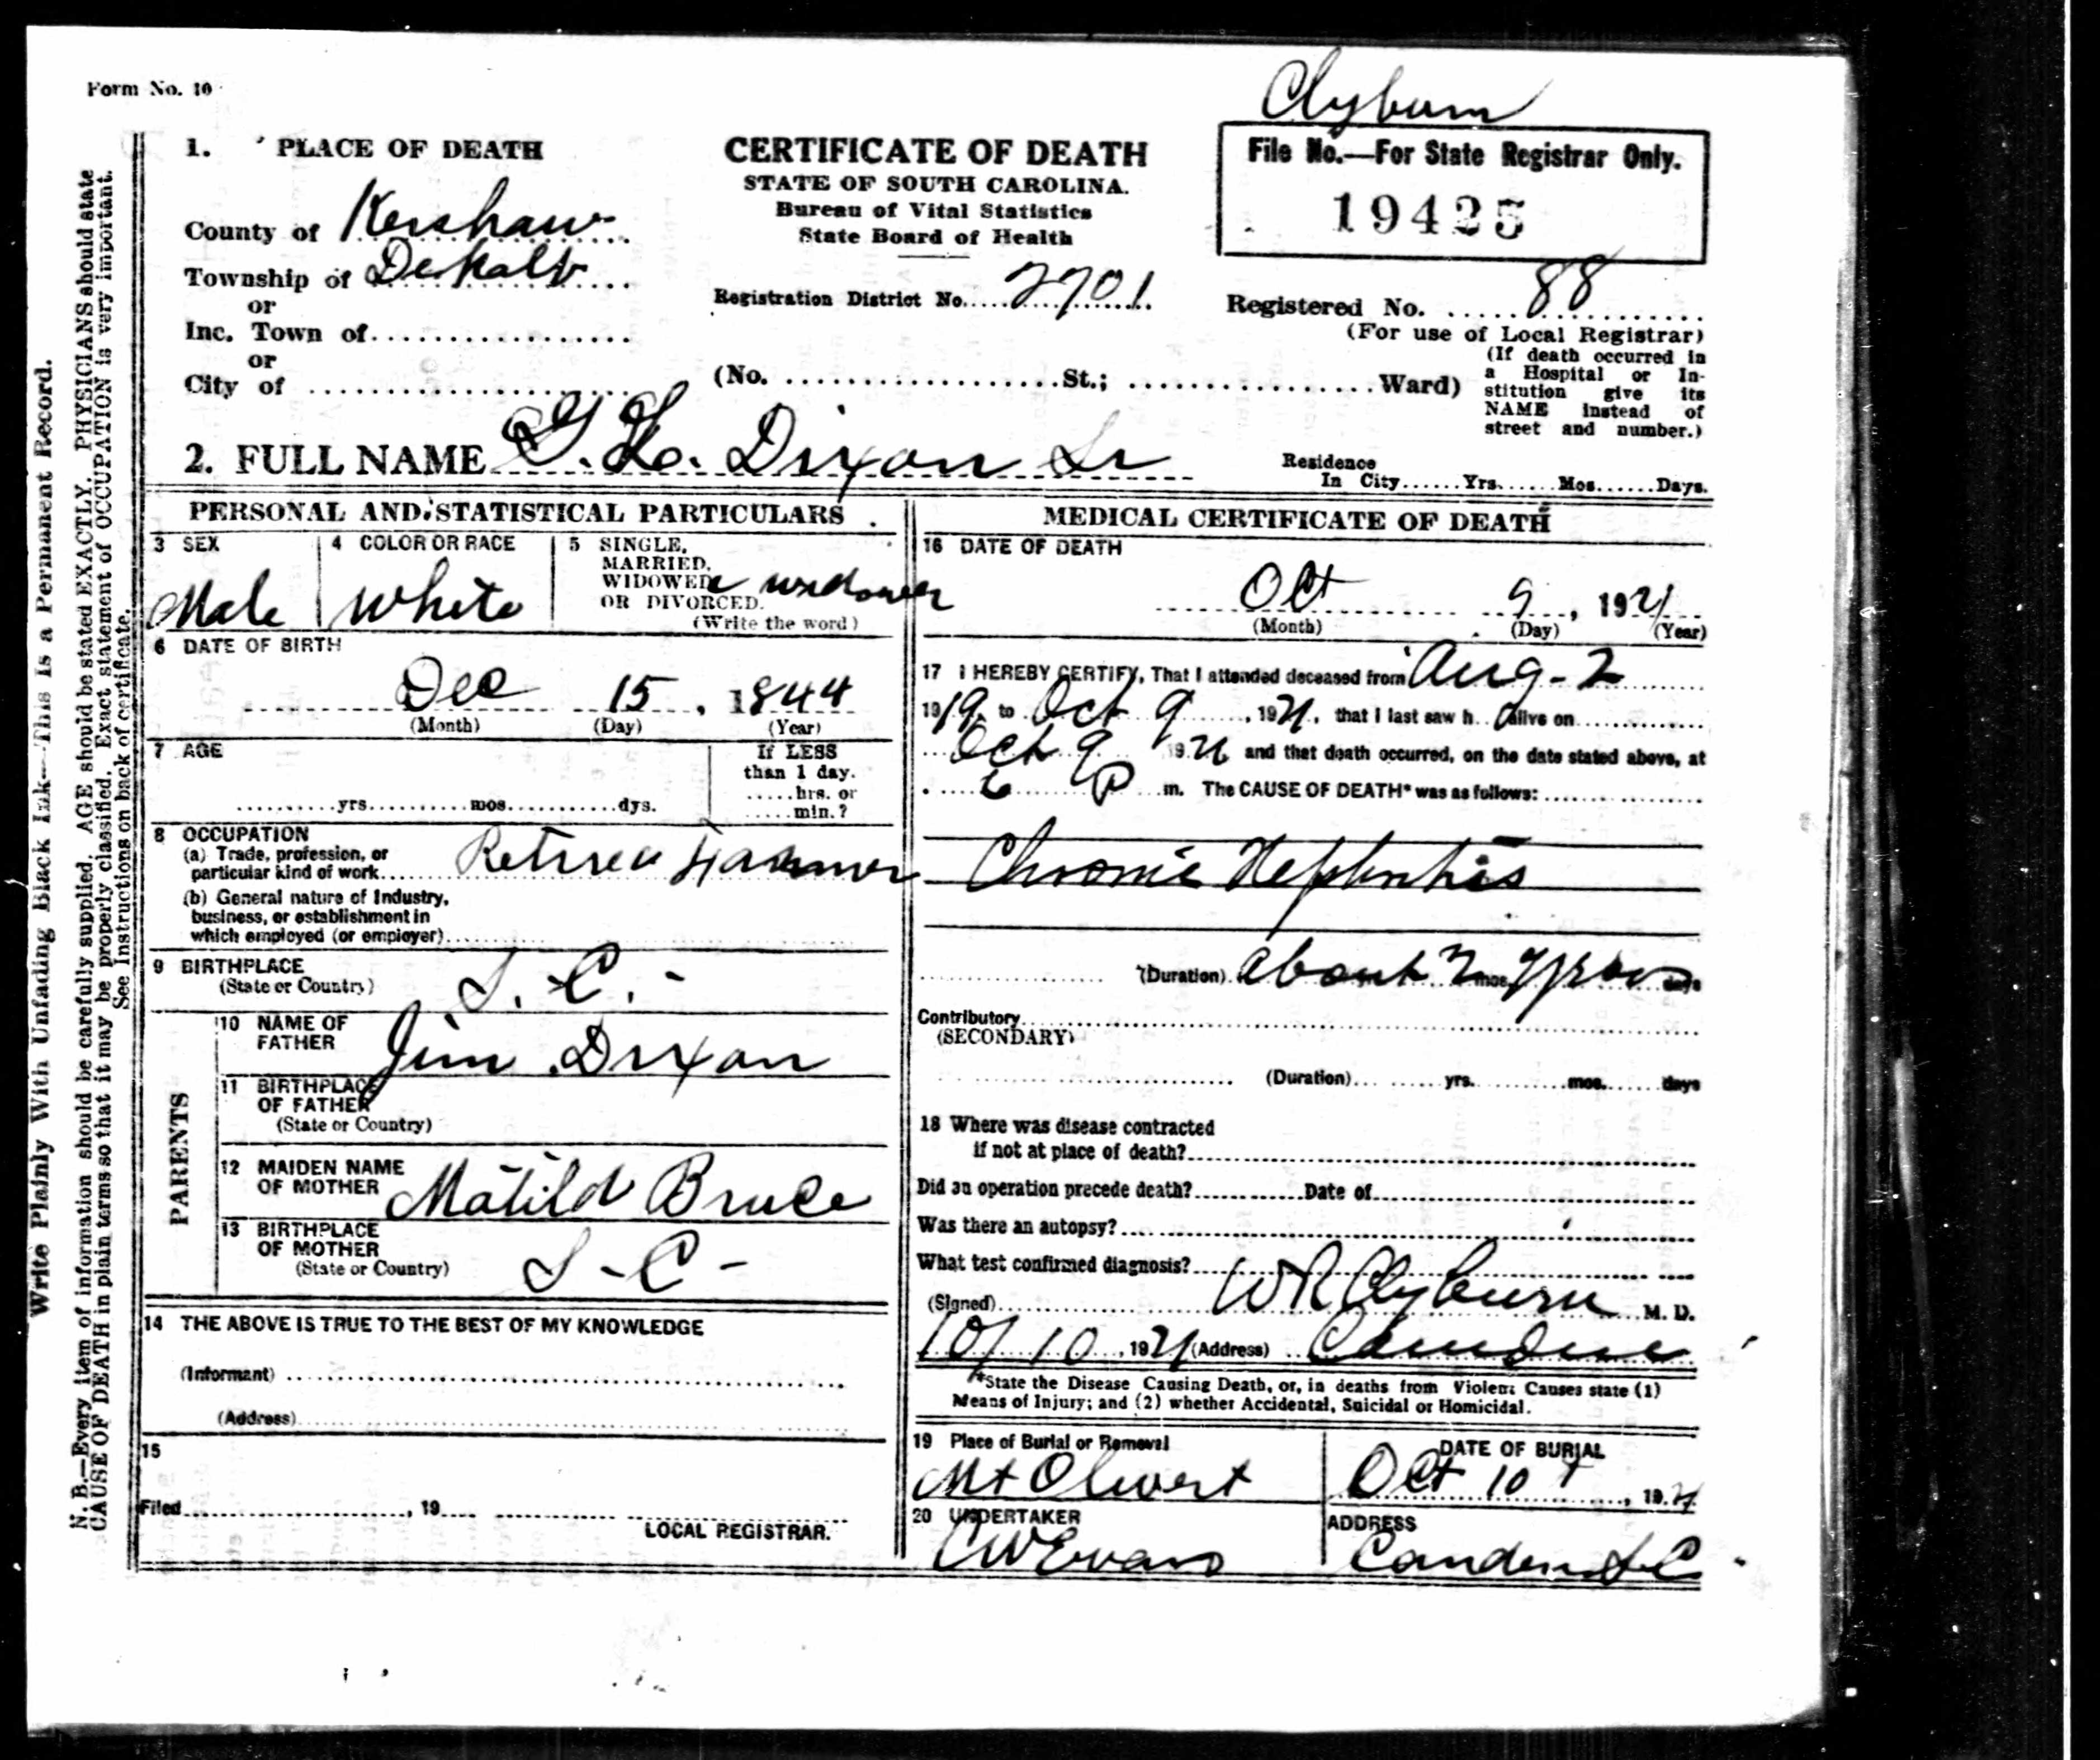 Form No. 10
Clyburn
1. PLACE OF DEATH
County of Kershaw
Township of DeKalb
or
Inc. Town of
or
City of
CERTIFICATE OF DEATH
STATE OF SOUTH CAROLINA.
Bureau of Vital Statistics
State Board of Health
Registration District No. 2701
(No. St.; Ward)
File No.—For State Registrar Only.
19425
Registered No. 88
(For use of Local Registrar)
(If death occurred in
a Hospital or In-
stitution give its
NAME instead of
street and number.)
2. FULL NAME Dixon Sr
Residence
In City Yrs. Mos. Days.
PERSONAL AND STATISTICAL PARTICULARS
3 SEX
Male
4 COLOR OR RACE
White
5 SINGLE,
MARRIED,
WIDOWED
OR DIVORCED.
(Write the word)
widower
6 DATE OF BIRTH
Dec 15, 1844
(Month) (Day) (Year)
7 AGE
yrs. mos. dys.
If LESS
than 1 day.
hrs. or
min.?
8 OCCUPATION
(a) Trade, profession, or
particular kind of work Retired Farmer
(b) General nature of Industry,
business, or establishment in
which employed (or employer)
9 BIRTHPLACE
(State or Country)
S. C. -
PARENTS
10 NAME OF
FATHER
Jim Dixon
11 BIRTHPLACE
OF FATHER
(State or Country)
12 MAIDEN NAME
OF MOTHER
Matild Bruce
13 BIRTHPLACE
OF MOTHER
(State or Country)
S - C -
14 THE ABOVE IS TRUE TO THE BEST OF MY KNOWLEDGE
(Informant)
(Address)
15
Filed , 19
LOCAL REGISTRAR.
MEDICAL CERTIFICATE OF DEATH
16 DATE OF DEATH
Oct 9, 1921
(Month) (Day) (Year)
17 I HEREBY CERTIFY, That I attended deceased from Aug - 2
1919, to Oct 9, 1921, that I last saw h alive on
Oct 9 1921 and that death occurred, on the date stated above, at
6 P m. The CAUSE OF DEATH* was as follows:
Chronic Nephritis
(Duration) about 2 mos. years days
Contributory
(SECONDARY)
(Duration) yrs. mos. days
18 Where was disease contracted
if not at place of death?
Did an operation precede death? Date of
Was there an autopsy?
What test confirmed diagnosis?
(Signed) W R Clyburn M. D.
10/10, 1921 (Address) Camden
*State the Disease Causing Death, or, in deaths from Violent Causes state (1)
Means of Injury; and (2) whether Accidental, Suicidal or Homicidal.
19 Place of Burial or Removal
Mt Olivert
DATE OF BURIAL
Oct 10, 1921
20 UNDERTAKER
C W Evans
ADDRESS
Camden S C
Write Plainly With Unfading Black Ink—This is a Permanent Record.
N. B.—Every item of information should be carefully supplied. AGE should be stated EXACTLY. PHYSICIANS should state
CAUSE OF DEATH in plain terms so that it may be properly classified. Exact statement of OCCUPATION is very important.
See Instructions on back of certificate.